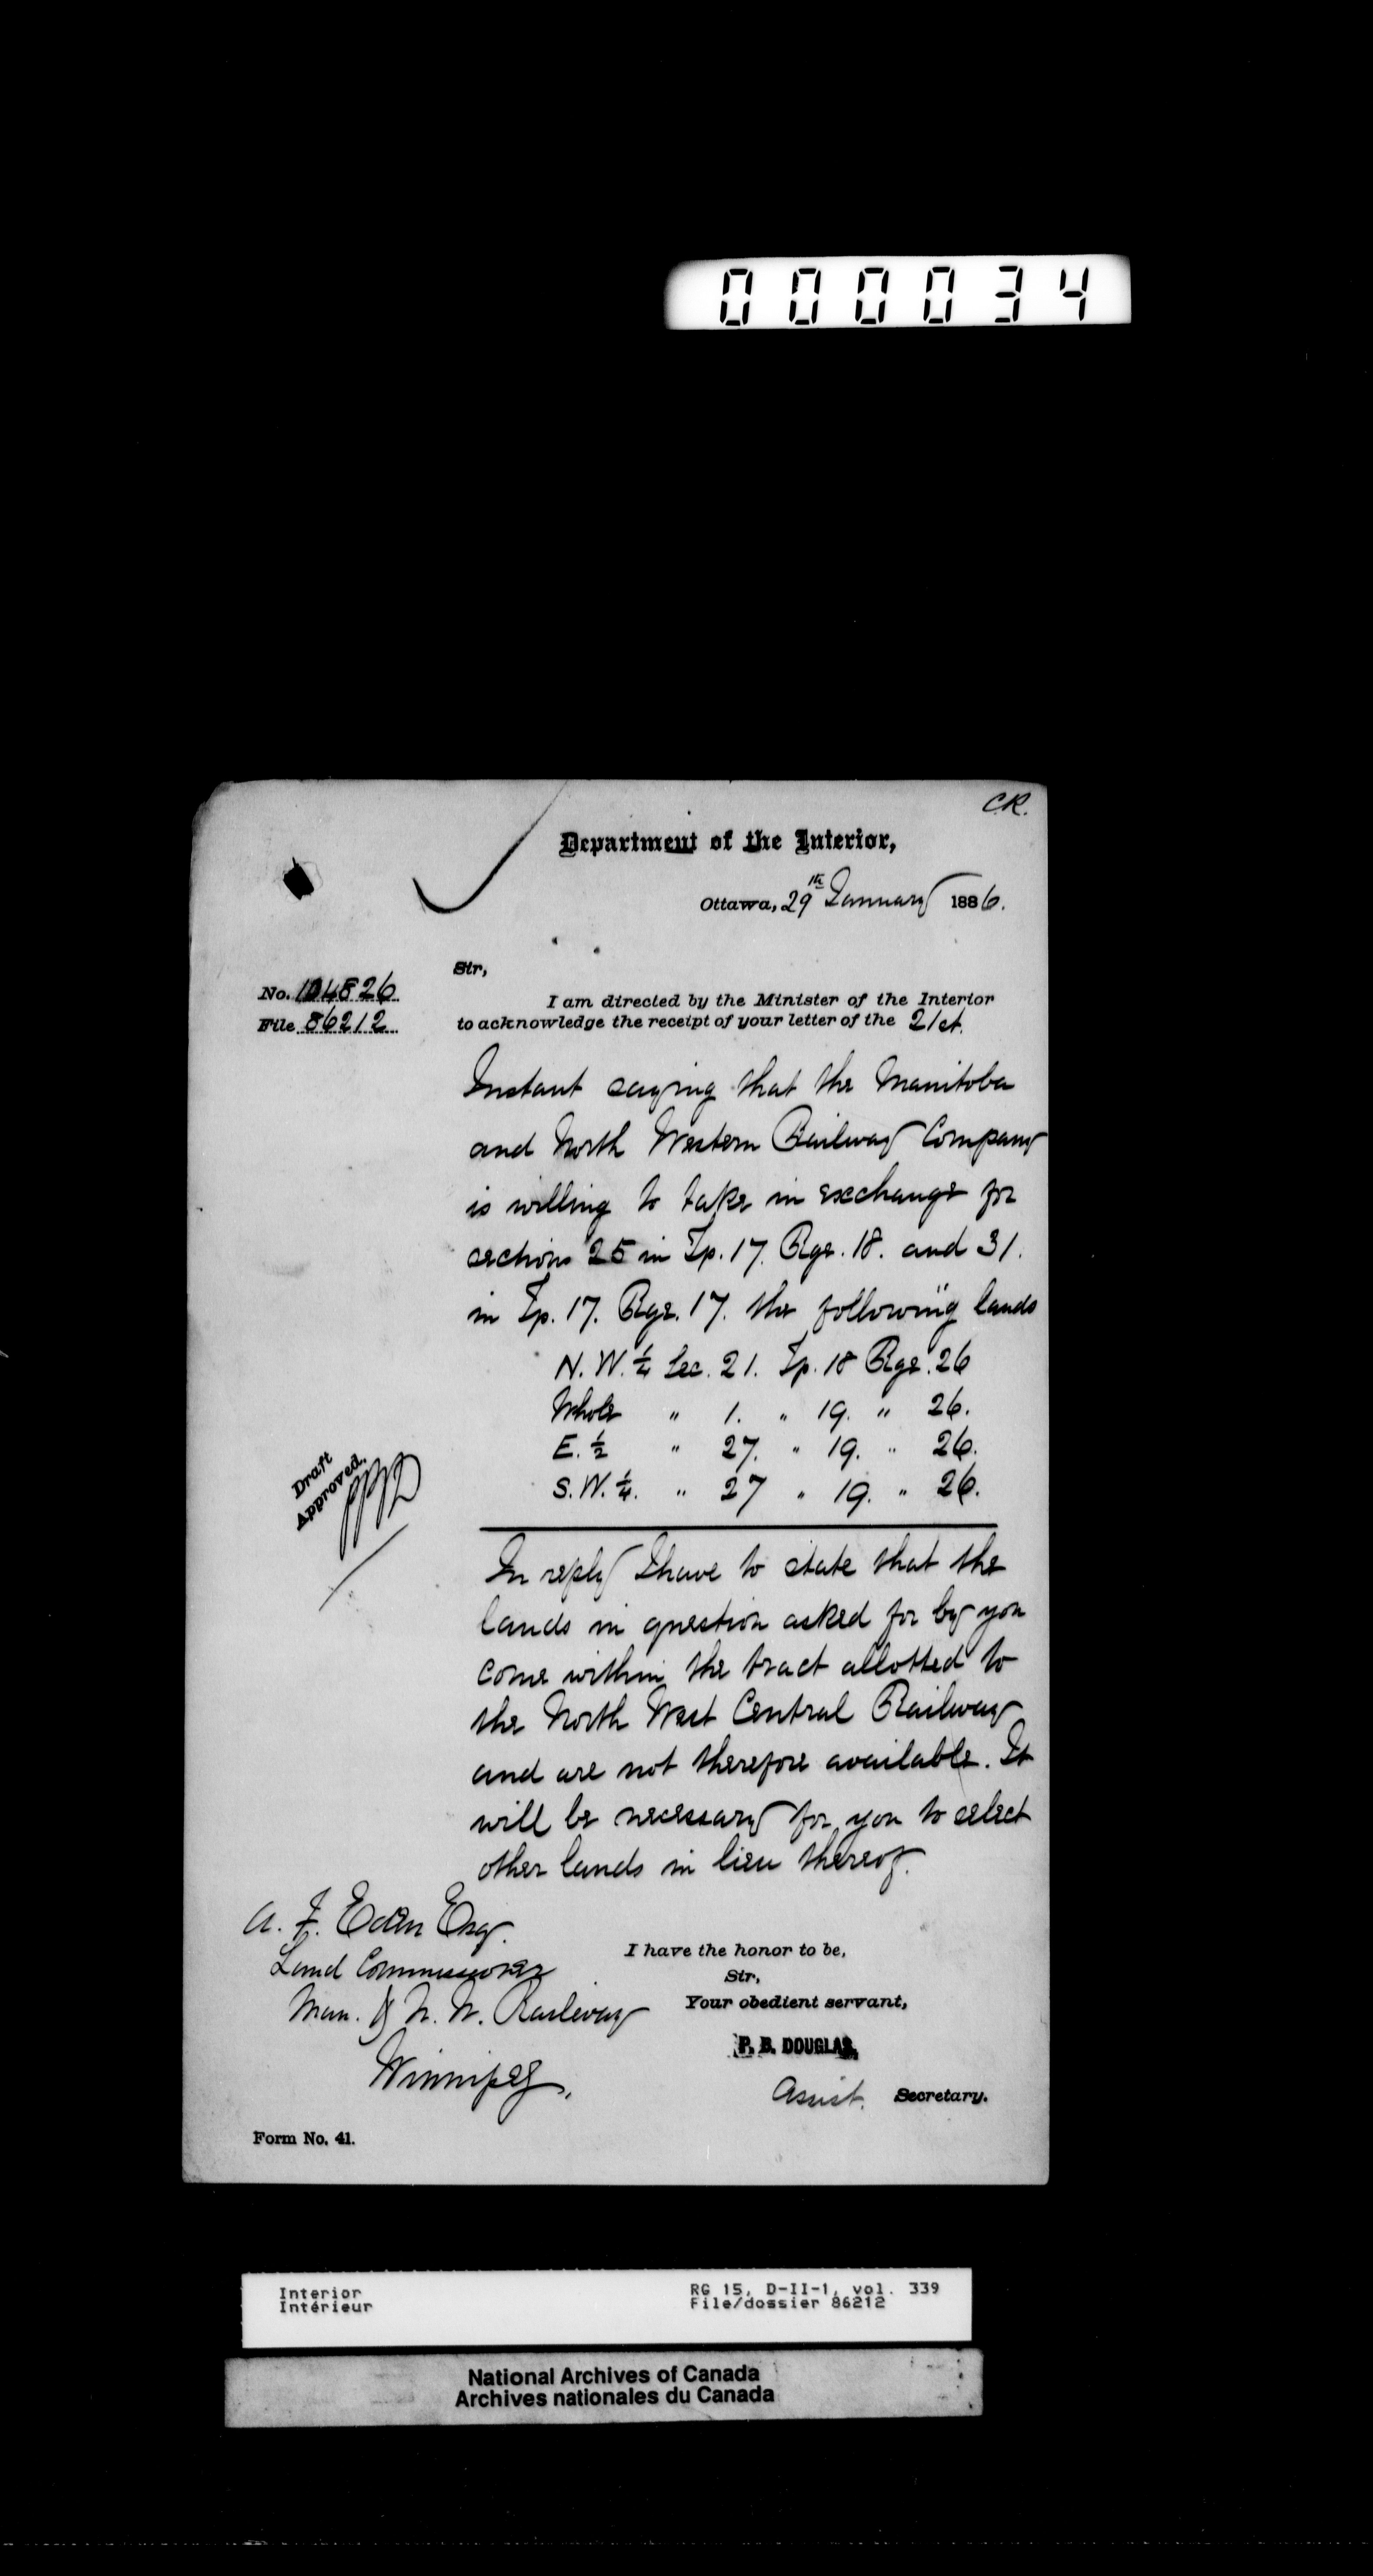 000034
C.R.
Department of the Interior,
Ottawa, 29th January 1886.
Sir,
No. 104826
File 86212
I am directed by the Minister of the Interior
to acknowledge the receipt of your letter of the 21st.
Instant saying that the Manitoba
and North Western Railway Company
is willing to take in exchange for
sections 25 in Tp. 17. Rge. 18. and 31.
in Tp. 17. Rge. 17. the following lands
N. W. ¼ Sec. 21. Tp. 18 Rge. 26
Whole " 1. " 19. " 26.
E. ½ " 27. " 19. " 26.
S. W. ¼. " 27 " 19. " 26.
Draft
Approved.
In reply I have to state that the
lands in question asked for by you
come within the tract allotted to
the North West Central Railway
and are not therefore available. It
will be necessary for you to select
other lands in lieu thereof.
A. F. Eden Esq.
Land Commissioner
Man. & N. W. Railway
Winnipeg.
I have the honor to be,
Sir,
Your obedient servant,
P. B. DOUGLAS,
Assist. Secretary.
Form No. 41.
Interior
Intérieur
RG 15, D-II-1, vol. 339
File/dossier 86212
National Archives of Canada
Archives nationales du Canada